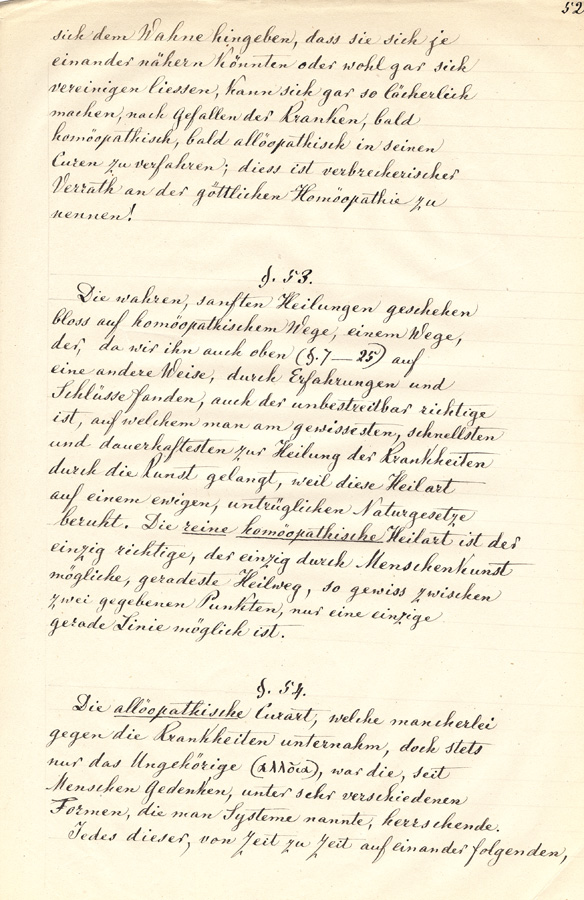 52
sich dem Wahne hingeben, dass sie sich je
einander nähern könnten oder wohl gar sich
vereinigen liessen, kann sich gar so lächerlich
machen, nach Gefallen der Kranken, bald
homöopathisch, bald allöopathisch in seinen
Curen zu verfahren; diess ist verbrecherischer
Verrath an der göttlichen Homöopathie zu
nennen!
§. 53.
Die wahren, sanften Heilungen geschehen
bloss auf homöopathischem Wege, einem Wege,
der, da wir ihn auch oben (§. 7 — 25) auf
eine andere Weise, durch Erfahrungen und
Schlüsse fanden, auch der unbestreitbar richtige
ist, auf welchem man am gewissesten, schnellsten
und dauerhaftesten zur Heilung der Krankheiten
durch die Kunst gelangt, weil diese Heilart
auf einem ewigen, untrüglichen Naturgesetze
beruht. Die reine homöopathische Heilart ist der
einzig richtige, der einzig durch Menschenkunst
mögliche, geradeste Heilweg, so gewiss zwischen
zwei gegebenen Punkten, nur eine einzige
gerade Linie möglich ist.
§. 54.
Die allöopathische Curart, welche mancherlei
gegen die Krankheiten unternahm, doch stets
nur das Ungehörige (αλλοῖα), war die, seit
Menschen Gedenken, unter sehr verschiedenen
Formen, die man Systeme nannte, herrschende.
Jedes dieser, von Zeit zu Zeit auf einander folgenden,